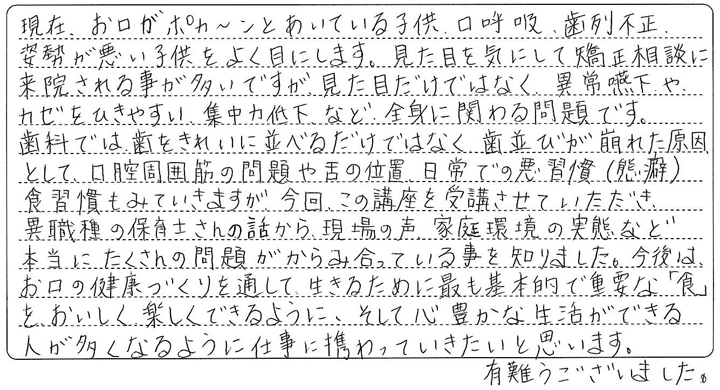 現在、お口がポカ〜ンとあいている子供、口呼吸、歯列不正、
姿勢が悪い子供をよく目にします。見た目を気にして矯正相談に
来院される事が多いですが見た目だけではなく、異常嚥下や、
カゼをひきやすい、集中力低下、など、全身に関わる問題です。
歯科では、歯をきれいに並べるだけではなく、歯並びが崩れた原因
として、口腔周囲筋の問題や舌の位置、日常での悪習慣（態癖）
食習慣もみていきますが、今回、この講座を受講させていただき、
異職種の保育士さんの話から、現場の声、家庭環境の実態など
本当にたくさんの問題がからみ合っている事を知りました。今後は、
お口の健康づくりを通して、生きるために最も基本的で重要な「食」
を、おいしく、楽しくできるように、そして心豊かな生活ができる
人が多くなるように仕事に携わっていきたいと思います。
有難うございました。